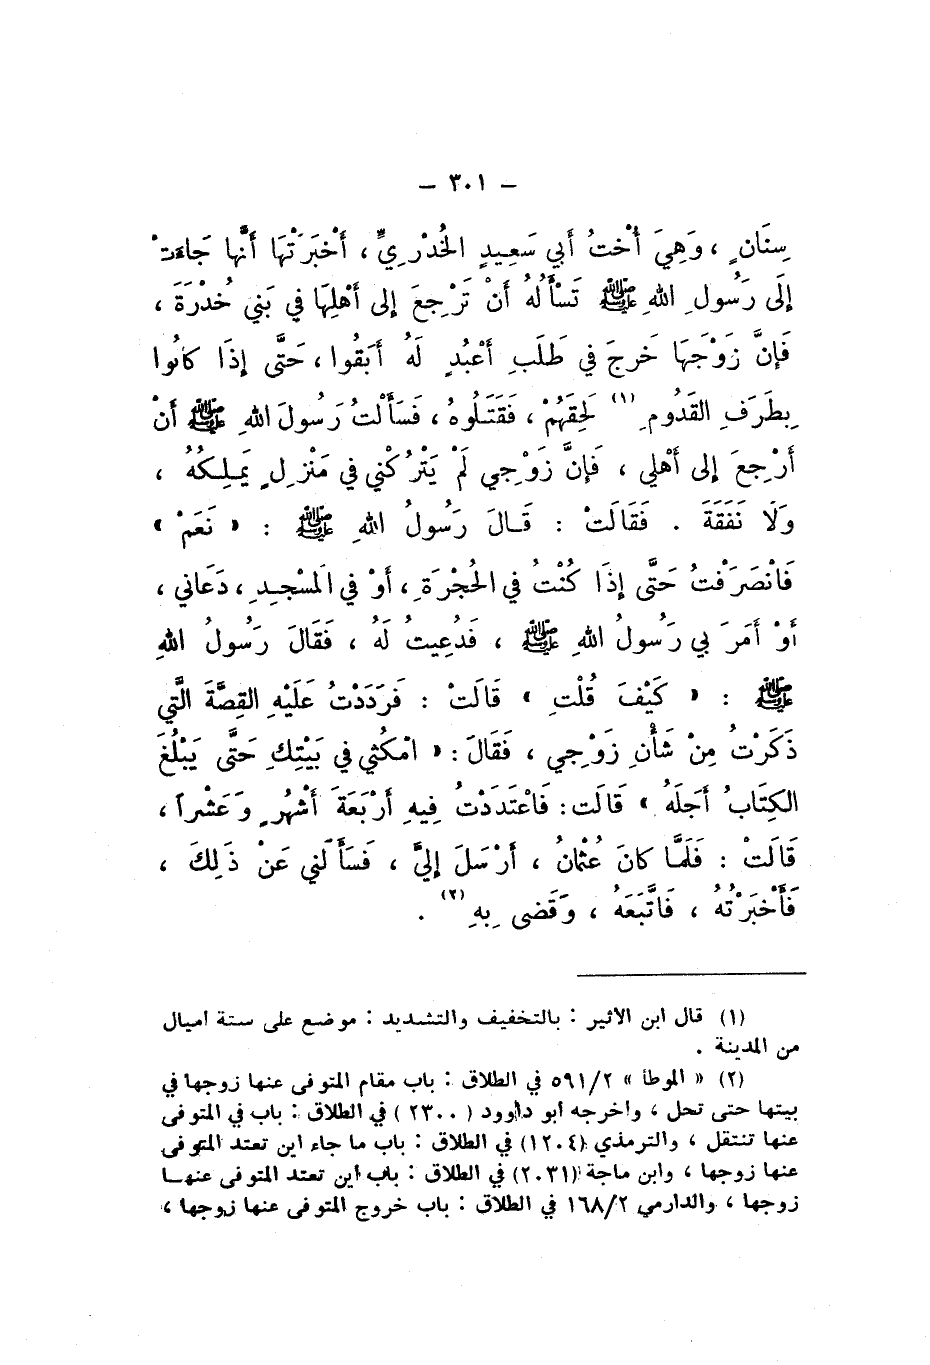 – ٣٠١ –
سِنَانٍ ، وَهِيَ أُخْتُ أَبي سَعِيدٍ الخُدْرِيِّ ، أَخْبَرَتْهَا أَنَّها جَاءَتْ
إِلَى رَسُولِ اللهِ ﷺ تَسْأَلُهُ أَنْ تَرْجِعَ إِلى أَهْلِهَا في بَنِي خُدْرَةَ ،
فَإِنَّ زَوْجَهَا خَرجَ في طَلَبِ أَعْبُدٍ لَهُ أَبَقُوا ، حَتَّى إِذَا كانُوا
بِطَرَفِ القَدُومِ (١) لَحِقَهُمْ ، فَقَتَلُوهُ ، فَسَأَلْتُ رَسُولَ اللهِ ﷺ أَنْ
أَرْجِعَ إِلى أَهْلِي ، فَإِنَّ زَوْجِي لَمْ يَتْرُكْنِي في مَنْزِلٍ يَملِكُهُ ،
وَلَا نَفَقَةَ . فَقَالَتْ : قَالَ رَسُولُ اللهِ ﷺ : « نَعَمْ »
فَانْصَرَفْتُ حَتَّى إِذَا كُنْتُ في الحُجْرَةِ ، أَوْ في المَسْجِدِ ، دَعَاني ،
أَوْ أَمَرَ بي رَسُولُ اللهِ ﷺ ، فَدُعِيتُ لَهُ ، فَقَالَ رَسُولُ اللهِ
ﷺ : « كَيْفَ قُلْتِ » قَالَتْ : فَرَدَدْتُ عَلَيْهِ القِصَّةَ الَّتِي
ذَكَرْتُ مِنْ شَأْنِ زَوْجِي ، فَقَالَ : « امْكُثي في بَيْتِكِ حَتَّى يَبْلُغَ
الكِتَابُ أَجَلَهُ » قَالَت : فَاعْتَدَدْتُ فِيهِ أَرْبَعَةَ أَشْهُرٍ وَعَشْراً ،
قَالَتْ : فَلَمَّا كانَ عُثْمَانُ ، أَرْسَلَ إِلَيَّ ، فَسَأَلَني عَنْ ذَلِكَ ،
فَأَخْبَرْتُهُ ، فَاتَّبَعَهُ ، وَقَضى بِهِ (٢) .
(١) قال ابن الأثير : بالتخفيف والتشديد : موضع على ستة أميال
من المدينة .
(٢) « الموطأ » ٥٩١/٢ في الطلاق : باب مقام المتوفى عنها زوجها في
بيتها حتى تحل ، واخرجه أبو داوود ( ٢٣٠٠ ) في الطلاق : باب في المتوفى
عنها تنتقل ، والترمذي (١٢٠٤) في الطلاق : باب ما جاء اين تعتد المتوفى
عنها زوجها ، وابن ماجة (٢٠٣١) في الطلاق : باب أين تعتد المتوفى عنهـا
زوجها ، والدارمي ١٦٨/٢ في الطلاق : باب خروج المتوفى عنها زوجها ،